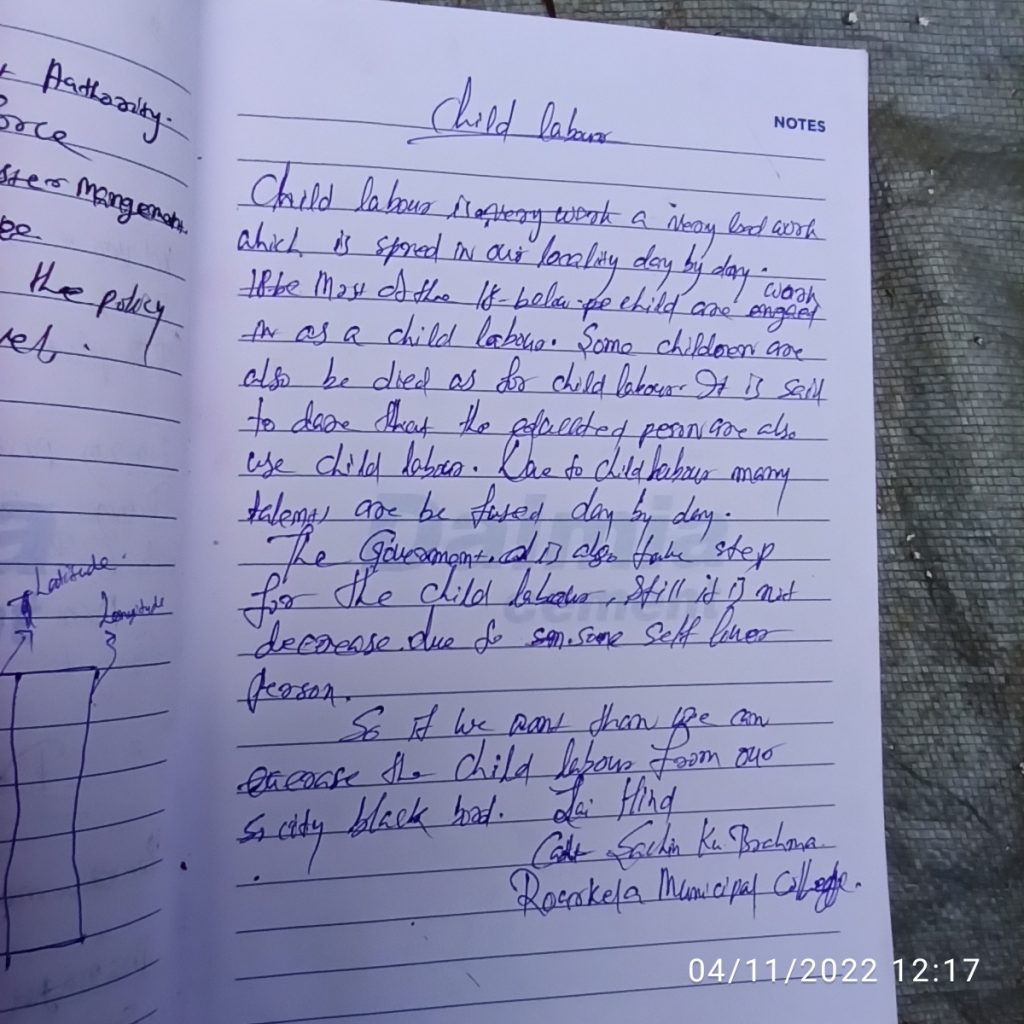 t Authority.
force
ster mangement
ee.
the policy
vel.
Latitude
Longitude
Child labour
NOTES
Child labour is a very bad work
which is spred in our locality day by day.
work
Most of the 18-below child are engaed
in as a child labour. Some children are
also be died as for child labour. It is said
to dare that the educated person are also
use child labour. Due to child labour many
talents are be fused day by day.
The Government is also take step
for the child labour, still it is not
decrease due to some self liver
person.
So if we want than we can
erease the child labour from our
socity black bord. Jai Hind
Cadt Sachin Ku Brahma.
Rourkela Municipal College.
Dalmia
cement
04/11/2022 12:17